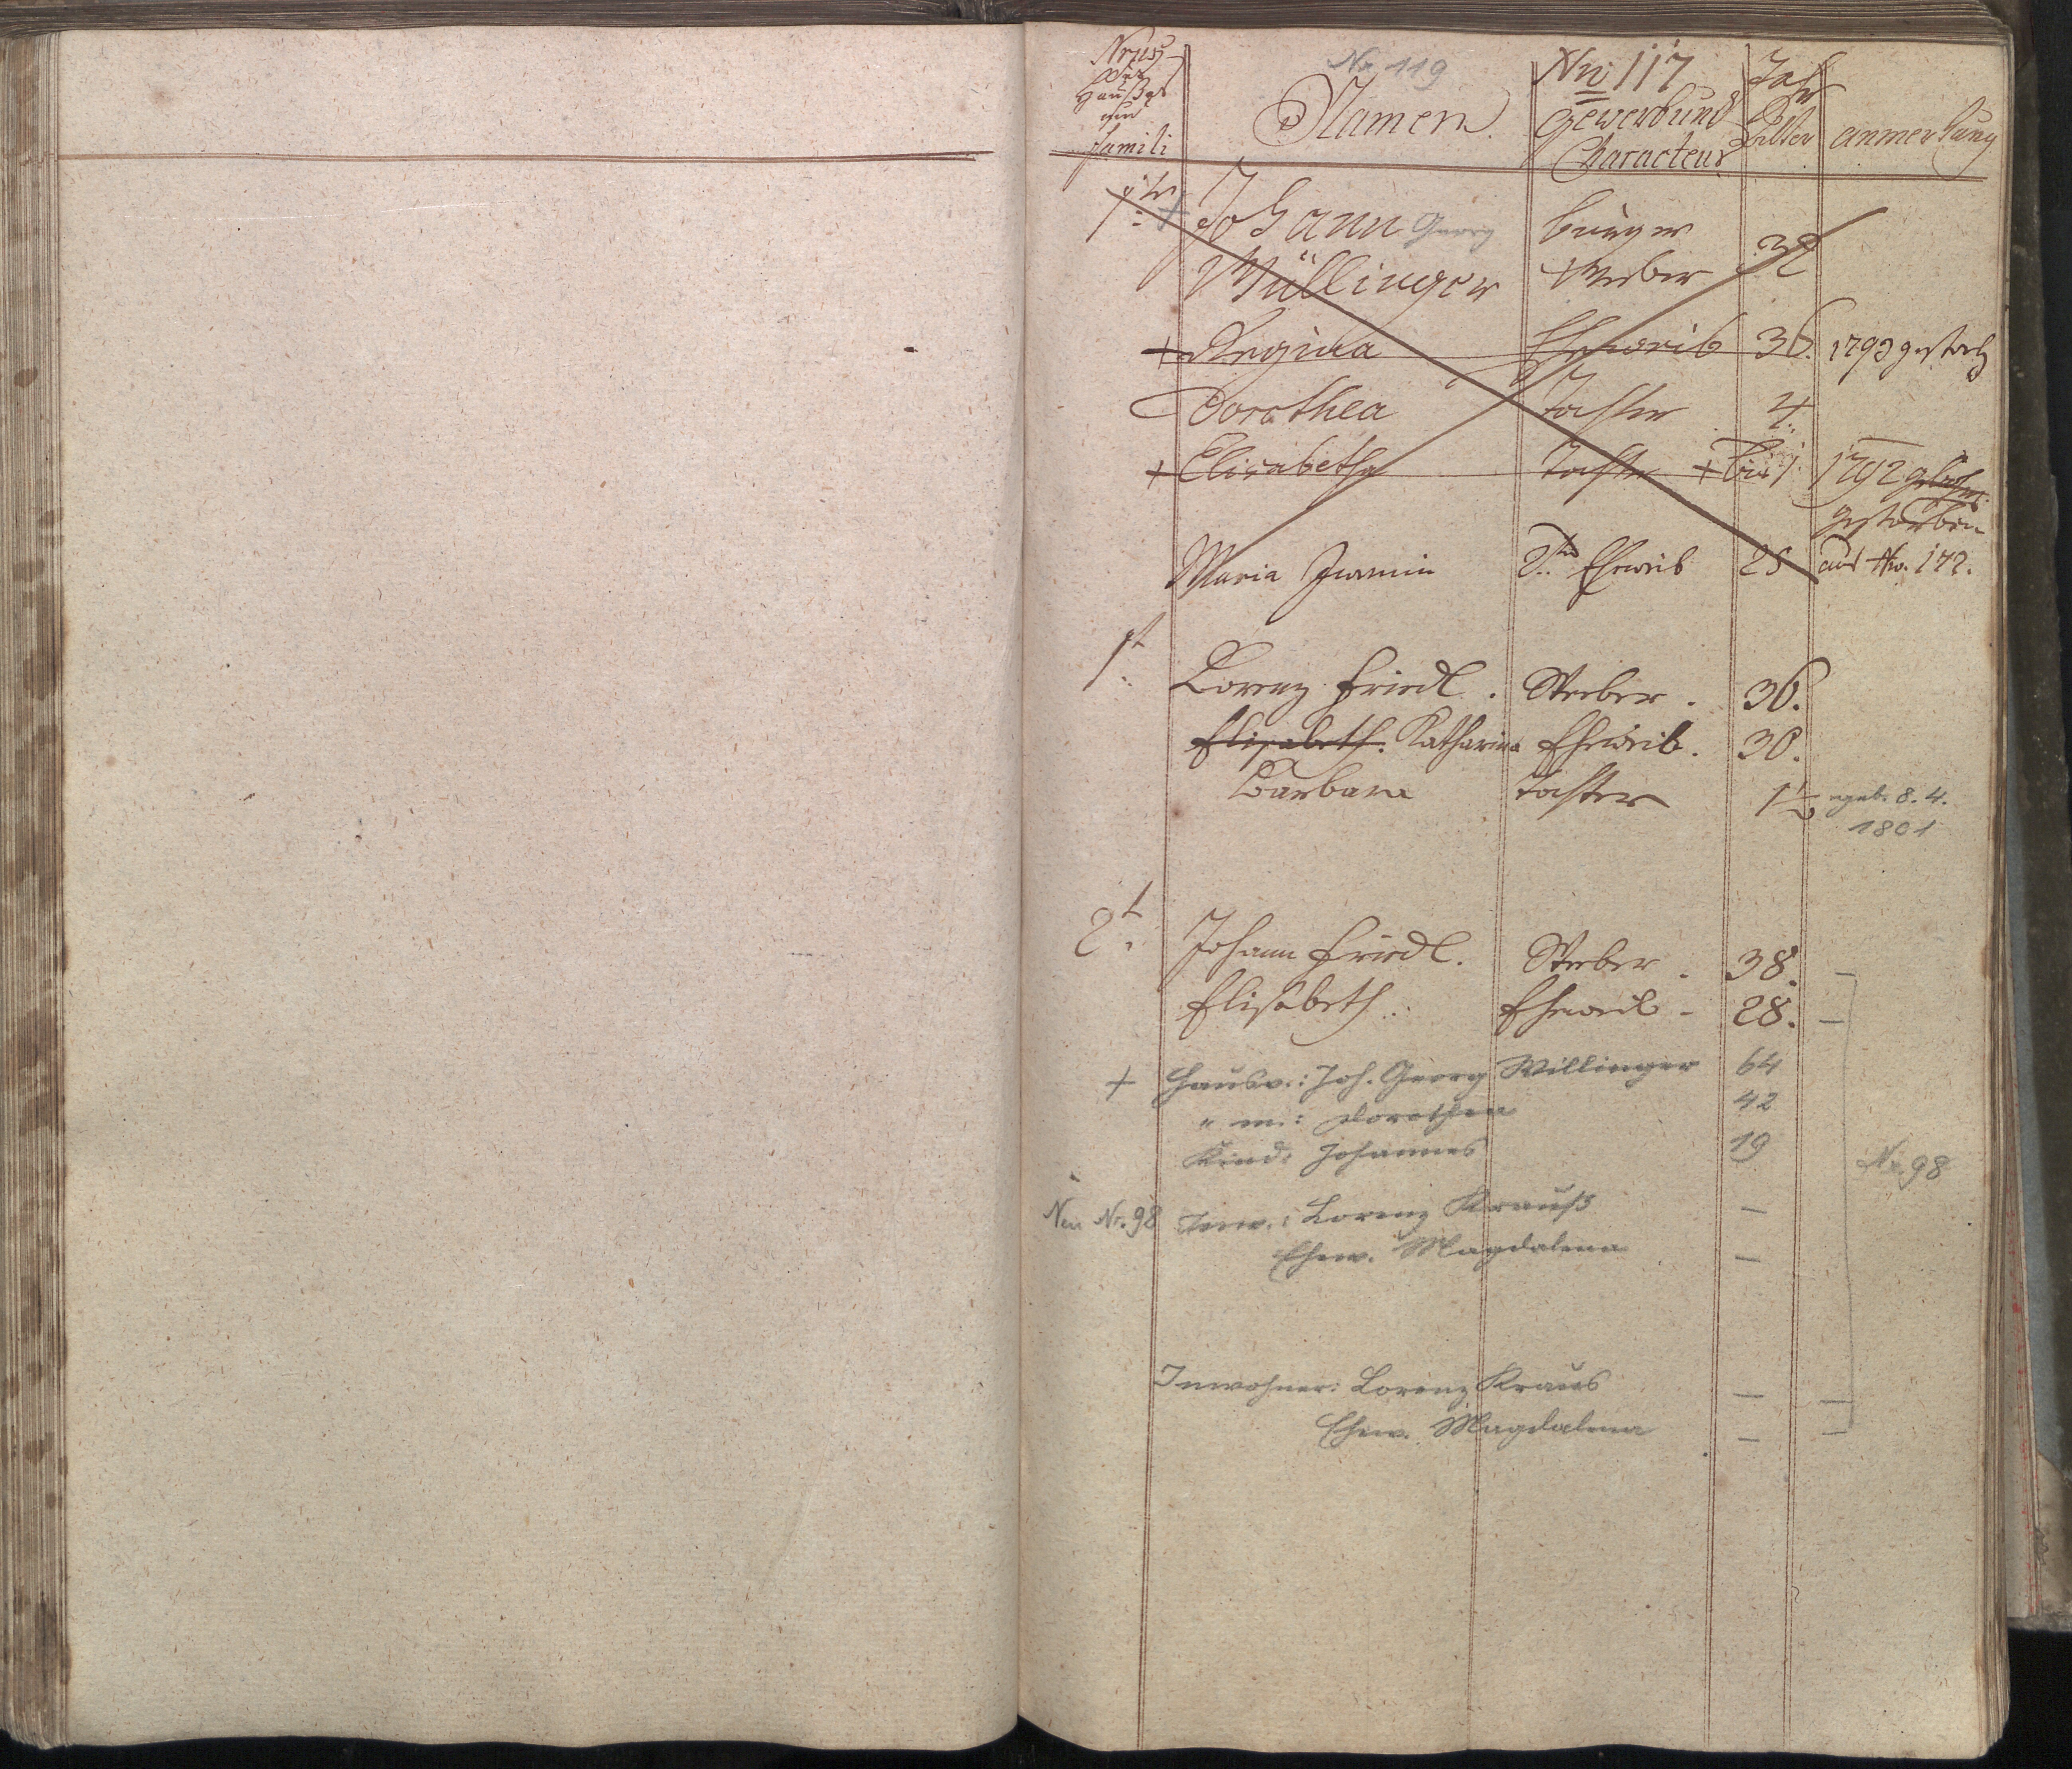 Nr. 119
Nro 117
Haußes
und
famili
Namen.
Gewerb und
Characteur
Jahr
Alter
anmerkung
1te
Johann Georg
Burger
Willinger
Weber
32
Regina
Eheweib
36.
1793 gestorb
Dorothea
Tochter
4.
Elisabetha
Tochter
1.
1792
gestorben
Maria
2te Eheweib
25
aus No. 172.
1t
Lorenz Friedl.
Weber.
36.
Elisabeth. Katharina
Eheweib.
30.
Barbara
Tochter
1 1/2
geb. 8. 4.
1801
2t.
Johann Friedl.
Weber.
38.
Elisabeth.
Eheweib
28.
+ Hausv.: Joh. Georg Willinger
64
" m.: Dorothea
42
Kind: Johannes
19
Nr. 98
Neu Nr. 98
Inw.: Lorenz Krauß
—
Ehew. Magdalena
—
Inwohner: Lorenz Kraus
—
Ehew. Magdalena
—